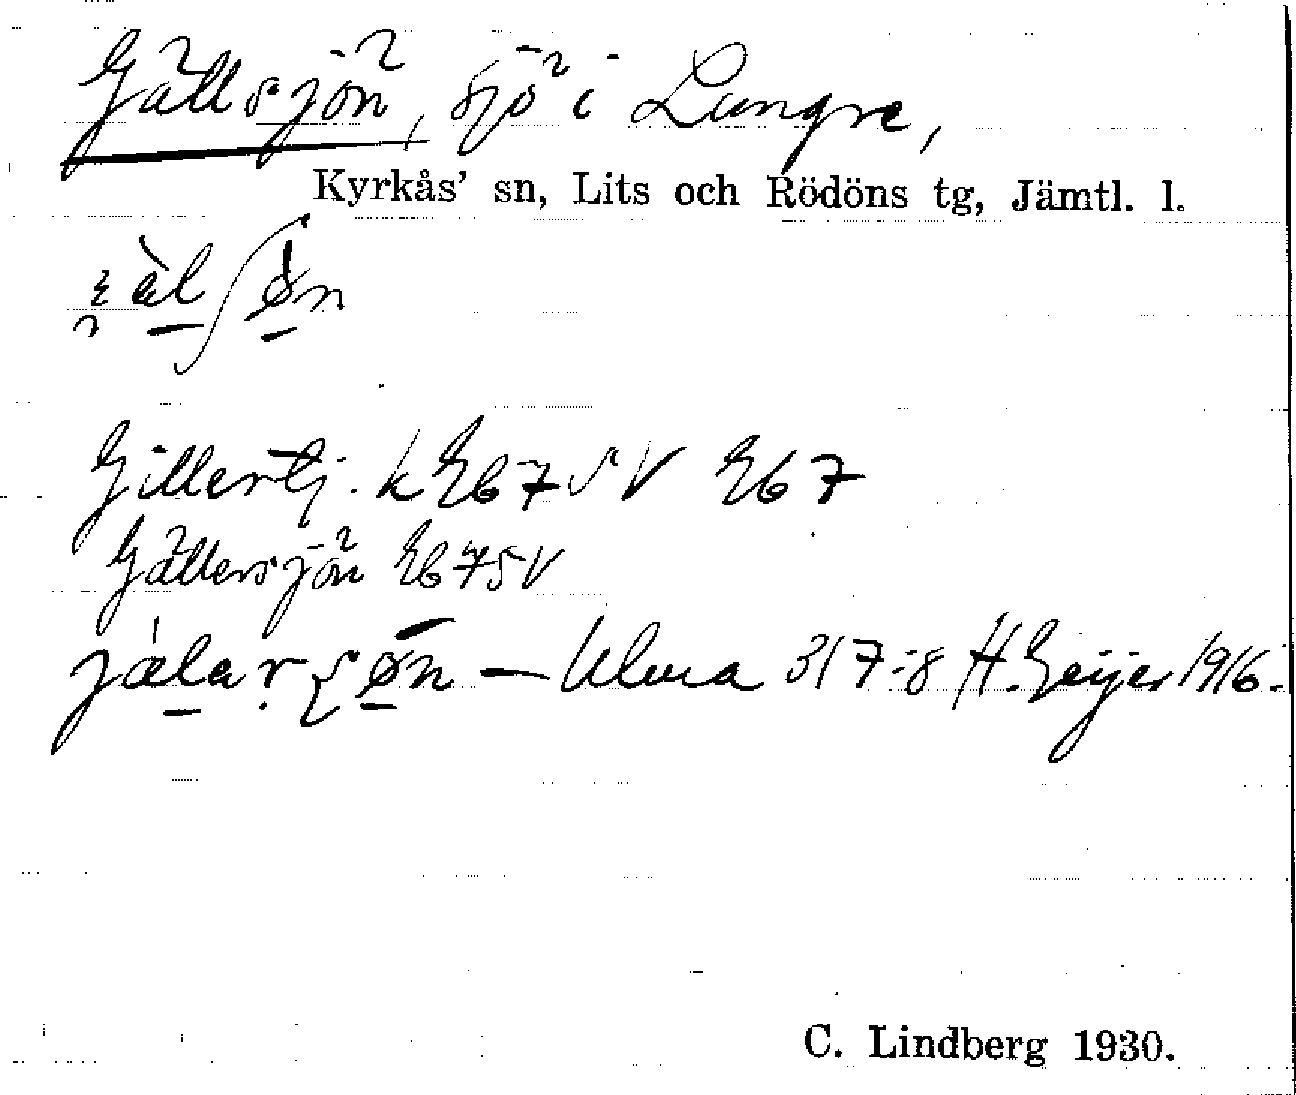 Gällsjön, sjö i Lungre,
Kyrkås' sn, Lits och Rödöns tg, Jämtl. l.
Gillertj. k Eb 7 SV Eb 7
Gällersjön Eb 7 SV
— Ulma 317:8 H. Geijer 1916.
C. Lindberg 1930.